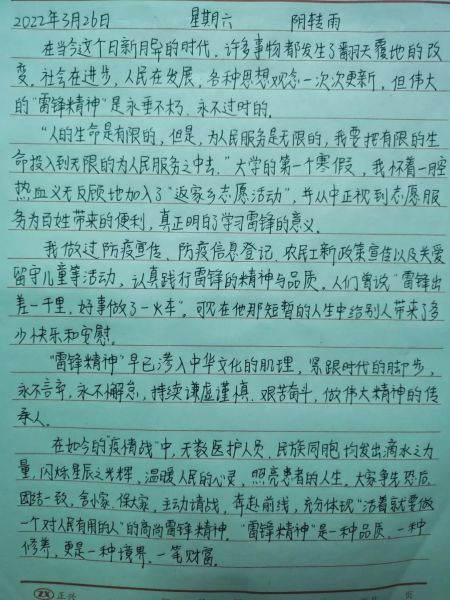 2022年3月26日 星期六 阴转雨
在当今这个日新月异的时代，许多事物都发生了翻天覆地的改
变。社会在进步，人民在发展，各种思想观念一次次更新，但伟大
的"雷锋精神"是永垂不朽、永不过时的。
"人的生命是有限的，但是，为人民服务是无限的，我要把有限的生
命投入到无限的为人民服务之中去。"大学的第一个寒假，我怀着一腔
热血义无反顾地加入了"返家乡志愿活动"，并从中正视到志愿服
务为百姓带来的便利，真正明白了学习雷锋的意义。
我做过防疫宣传、防疫信息登记、农民工新政策宣传以及关爱
留守儿童等活动，认真践行雷锋的精神与品质。人们曾说"雷锋出
差一千里，好事做了一火车"。可以在他那短暂的人生中给别人带来了多
少快乐和安慰。
"雷锋精神"早已渗入中华文化的肌理，紧跟时代的脚步，
永不言弃，永不懈怠，持续谦虚谨慎、艰苦奋斗，做伟大精神的传
承人。
在如今的"疫情战"中，无数医护人员、民族同胞均发出滴水之力
量，闪烁星辰之光辉，温暖人民的心灵，照亮患者的人生。大家争先恐后
团结一致，舍小家，保大家，主动请战，奔赴前线，充分体现"活着就要做
一个对人民有用的人"的高尚雷锋精神。"雷锋精神"是一种品质，一种
修养，更是一种境界，一笔财富。
ZX 正兴 页